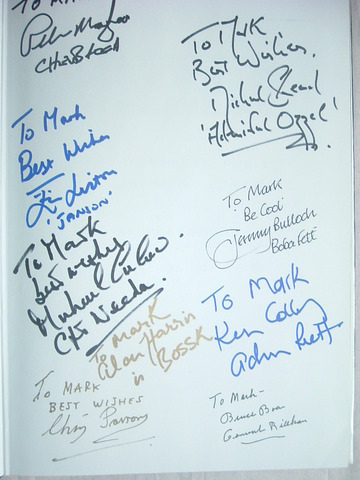 To Mark
Peter Mayhew
CHEWBACCA
To Mark
Best Wishes
'JANSON'
To Mark
best wishes
Michael Culver.
Cpt Needa.
To Mark
Alan Harris
in BOSSK
TO MARK
BEST WISHES
Chris Parsons
To Mark
Best Wishes.
Michael Sheard
'Admiral Ozzel'
To Mark
'Be Cool'
Jeremy Bulloch
Boba Fett
To Mark
Ken Colley
Adm Piett
To Mark-
Bruce Boa
General Rieekan